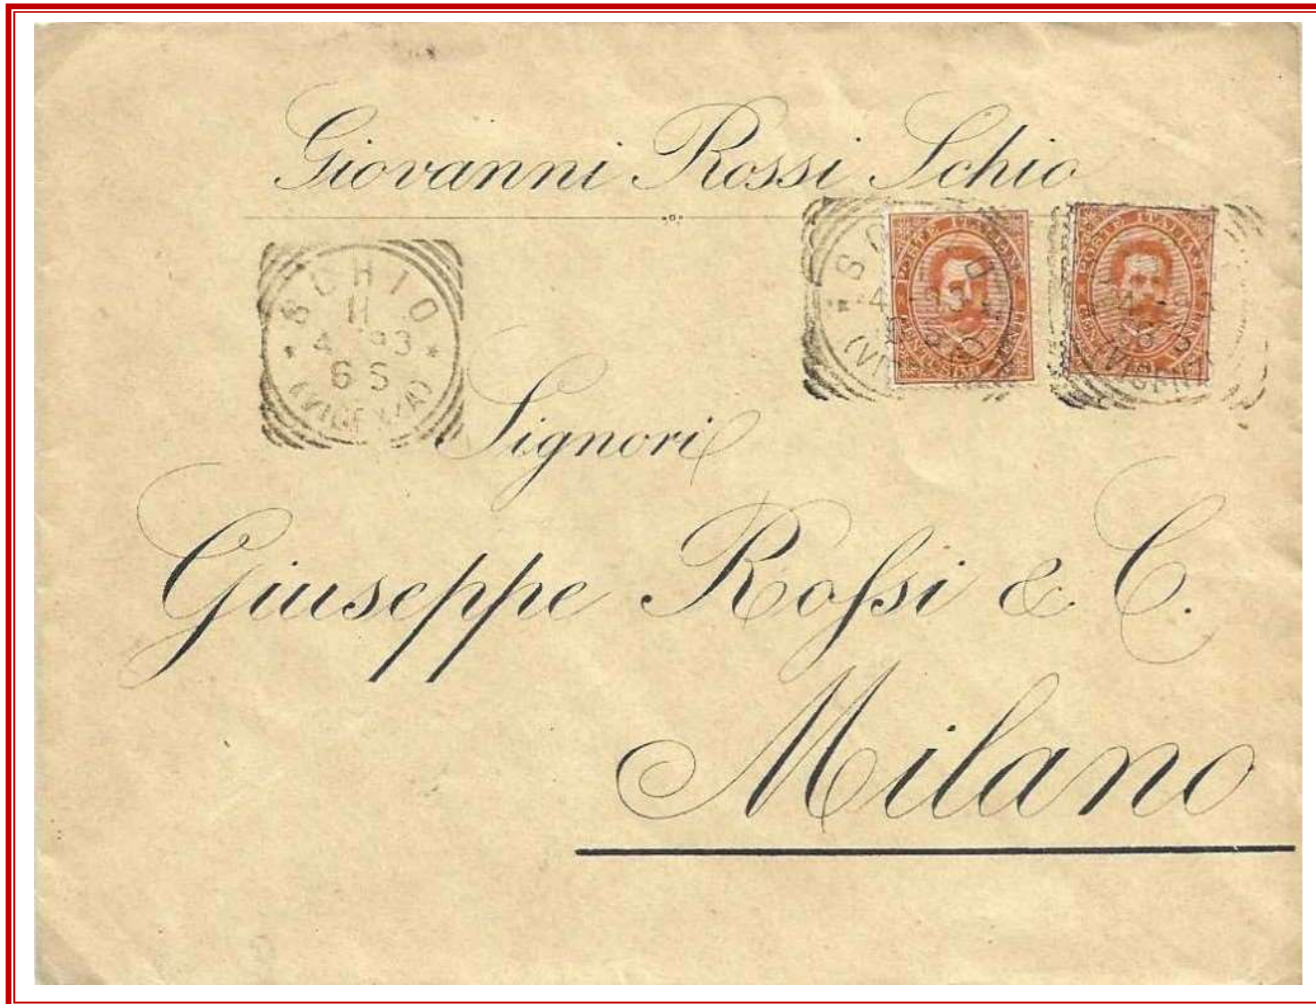 Giovanni Rossi Schio
SCHIO
11
4 93
6 S
(VICENZA)
POSTE ITALIANE
POSTE ITALIANE
Signori
Giuseppe Roſsi & C.
Milano